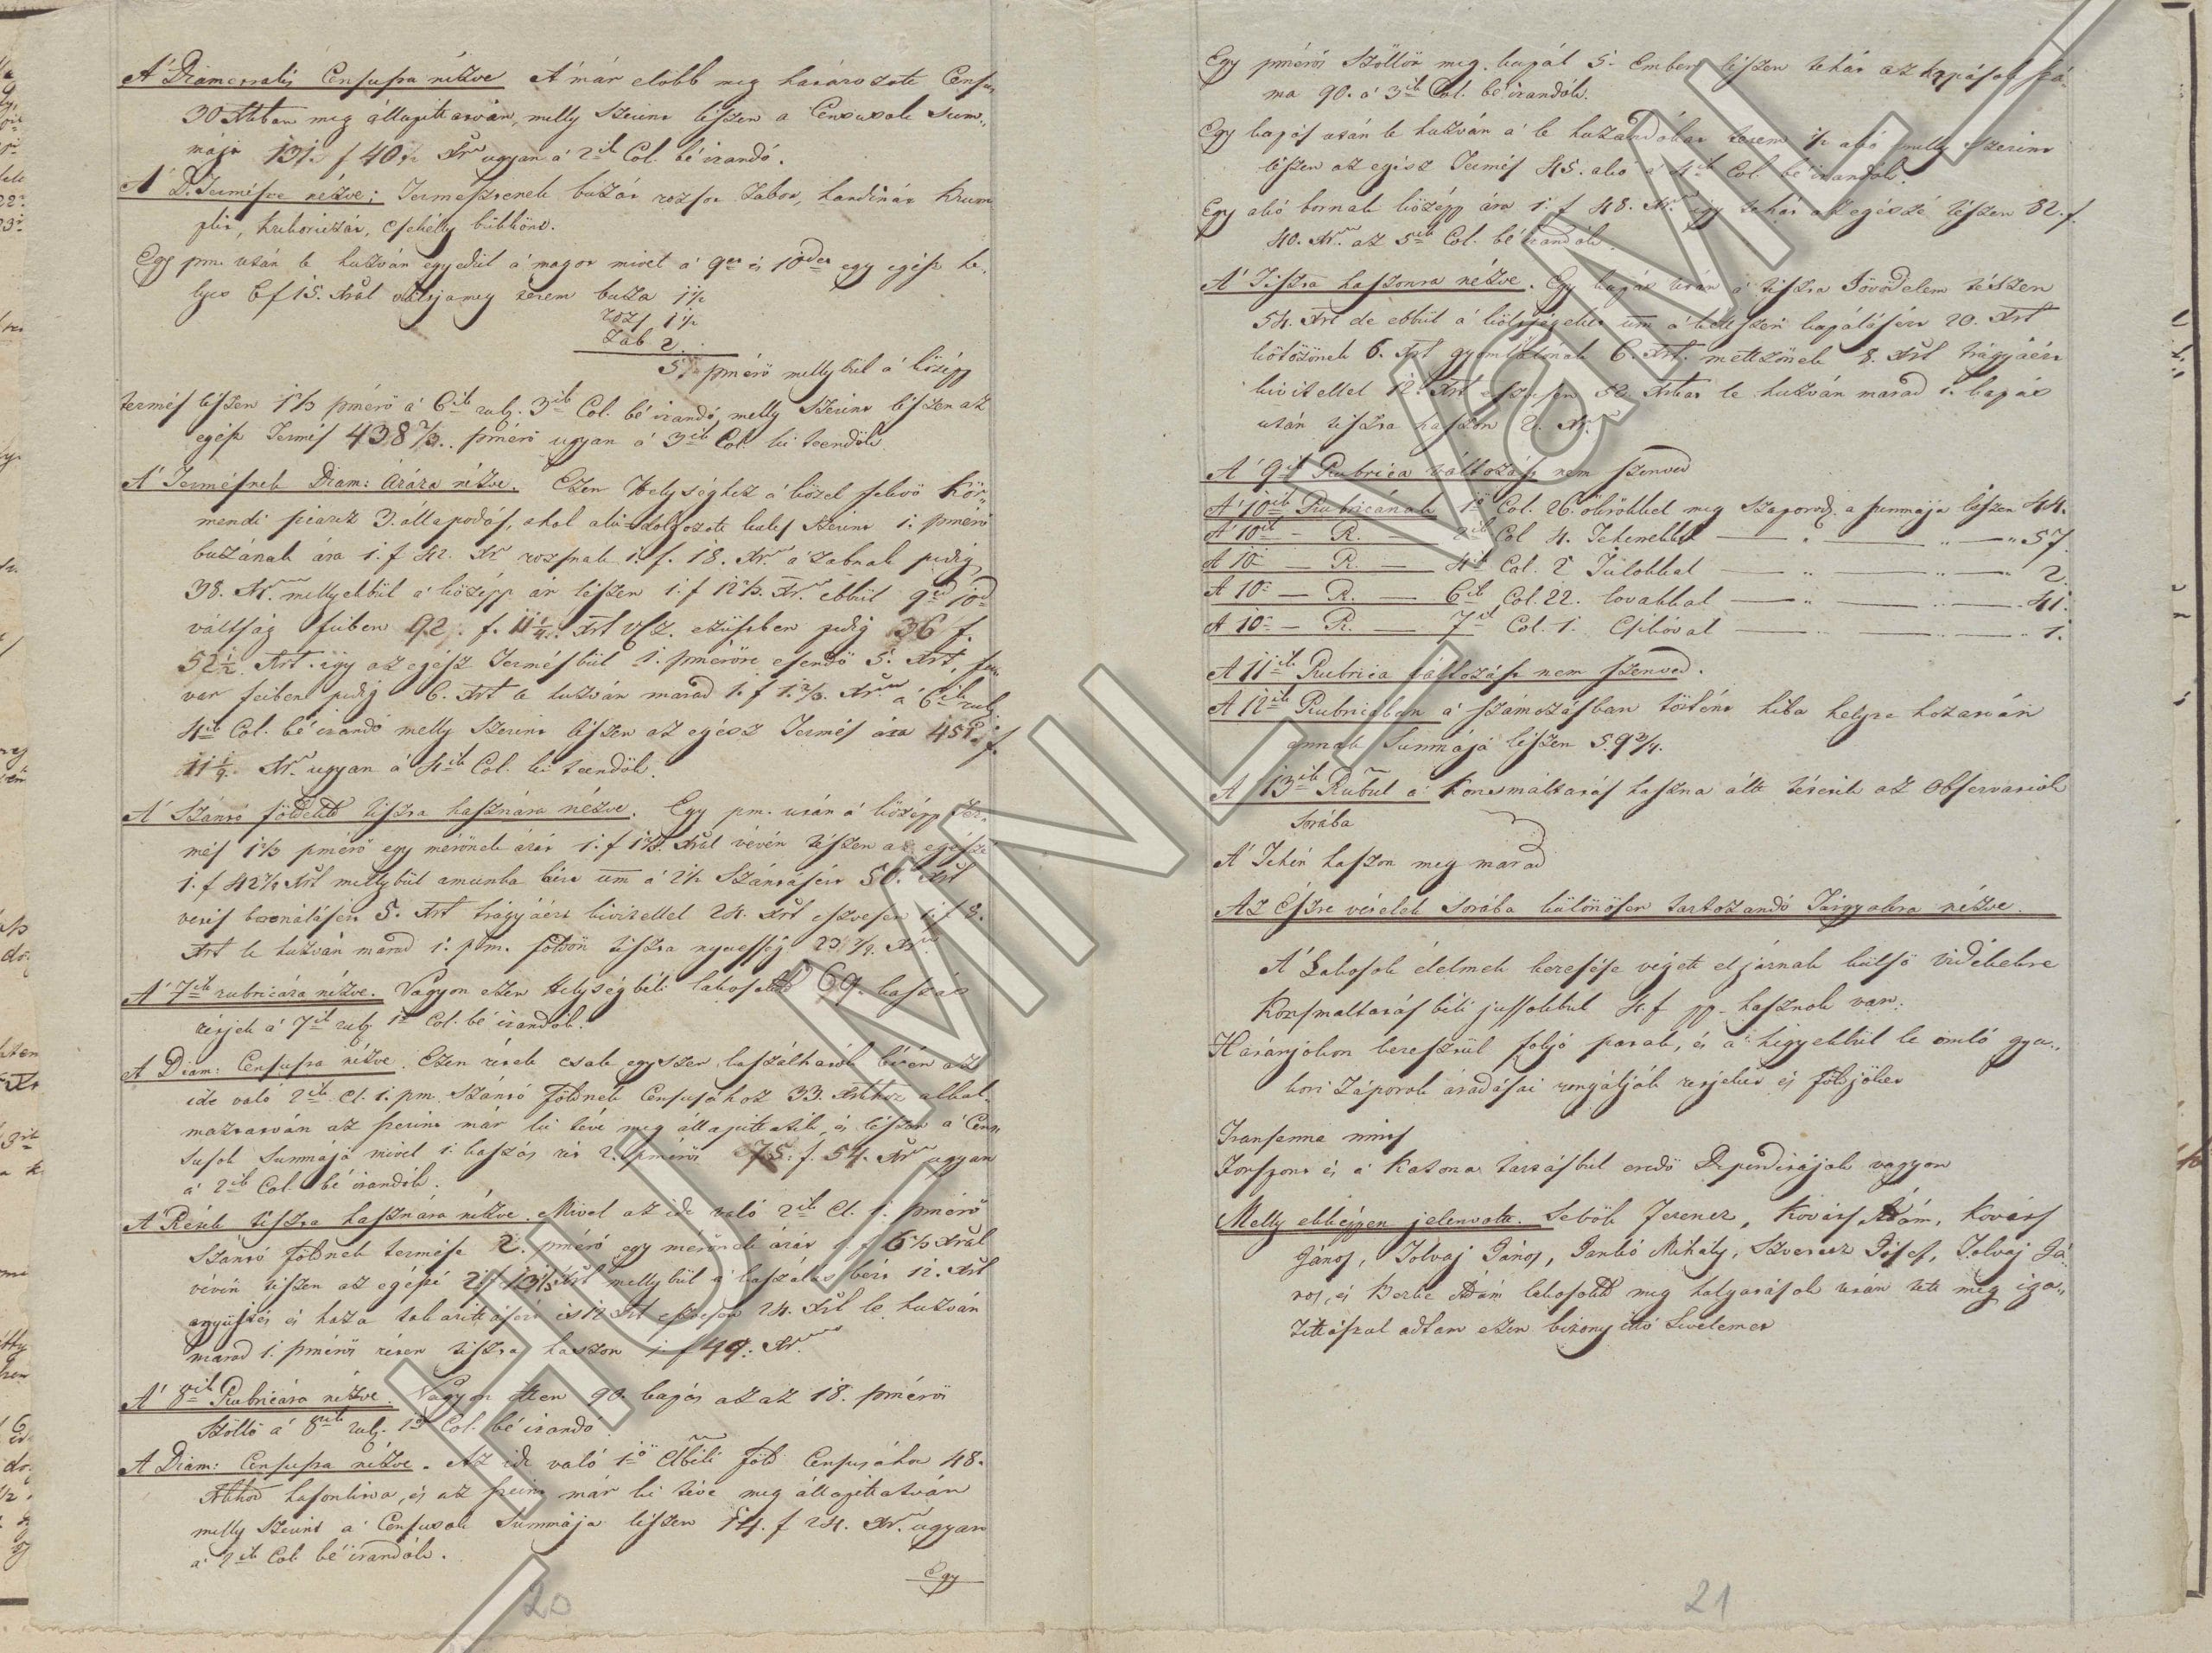 A' Diamenralis Censusra nézve A' már elöbb meg határozott Census
30 Xrban meg állapittatván, melly szerint lészen a Censusok Sum„
mája 131. f 40 Xr ugyan a' 2ik Col. bé irandó.
A' D. Termésre nézve; Termesztenek buzát rozsot Zabot, handinát Krum
plit, kukoriczát, csekélly bükkönt.
Egy pm. után le huzván egyedül a' magot mivel a' 9ed és 10ded egy egész he„
lyes 6 f 15. Xral váltja meg terem buza 1½
rozs 1½
Zab 2.
5. pmérö mellybül a' közép
termés lészen 1⅔ pmérö a' 6ik rub. 3ik Col. bé irandó, melly szerint lészen az
egész Termés 438⅓. pmérö ugyan a' 3ik Col. ki teendök
A' Termésnek Diam: árára nézve. Ezen Helységhez a' közel fekvö Kör„
mendi piarcz 3. állapodás, ahol alá dolgozott kulcs szerint 1. pmérö
buzának ára 1. f 42. Xr rozsnak 1. f. 18. Xr. a' zabnak pedig
38. Xr. mellyekbül a' közép ár lészen 1. f 12⅔. Xr. ebbül 9ed 10ed
váltság fejben 92. f. 11¼. Xrt V.Cz. ezüstben pedig 36 f.
52½ Xrt. igy az egész Termésbül 1. pméröre esendö 5. Xrt, fu„
var fejben pedig 6. Xrt le huzván marad 1. f 1⅔. Xr a' 6ik rub
4ik Col. bé irandó melly szerint lészen az egész Termés ára 451. f.
11 1/9. Xr. ugyan a' 4ik Col. ki teendök.
A' Szántó földek tiszta hasznára nézve. Egy pm. után a' közép Ter„
més 1⅔ pmérö egy mérönek árát 1. f 1⅔. Xral vévén tészen az egészé
1. f 42 7/9 Xrt mellybül a munka bére um a' 2½ Szántásért 50. Xrt
vetés boronálásért 5. Xrt trágyáért kivitellel 24. Xrt eszvesen 1. f 19.
Xrt le huzván marad 1. pm. földön tiszta nyereség 23 7/9. Xr
A' 7ik rubricára nézve. Vagyon ezen Helységbéli lakosoknak 69. kaszás
rétjek a' 7ik rub. 1ö Col. bé irandók.
A Diam: Censusra nézve. Ezen rétek csak egyszer kaszálhatók lévén az
ide való 2ik Cl. 1. pm. Szántó földnek Censusához 33. Xrhoz alkal„
maztatván az szerint már ki tévé meg állapittatik, és lészen a' Cen„
susok Summája mivel 1. kaszás rét 2. pmérös 75. f. 54. Xr ugyan
a' 2ik Col. bé irandók.
A' Rétek tiszta hasznára nézve. Mivel az ide való 2ik Cl. 1. pmérö
Szántó földnek termése 2. pmérö egy mérönek árát 1. f 6⅔ Xral
vévén tészen az egészé 2. f 13⅓ Xrt mellybül a' kaszálás bért 12. Xrt
gyüjtés és haza takarittásért is 12 Xrt eszvesen 24. Xrt le huzván
marad 1. pmérös réten tiszta haszon 1. f 49. Xr.
A' 8ik Rubricára nézve. Vagyon itten 90. kapás az az 18. pmérös
Szöllö a' 8ik rub. 1ö Col. bé irandó
A Diam: Censusra nézve. Az ide való 1ö Clbéli föld Censusához 48.
Xrhoz hasonlitva, és az szerint már ki tévé meg állapittatván
melly szerint a' Censusok Summája lészen 14. f 24. Xr. ugyan
a' 2ik Col. bé irandók.
Egy
20
Egy pmérös Szöllöt meg kapál 5. Ember lészen tehát az kapások szá„
ma 90. a' 3ik Col. bé irandók.
Egy kapás után le huzván a' le huzandókat terem ½ akó melly szerint
lészen az egész Termés 45. akó a' 4ik Col. bé irandók.
Egy akó bornak közép ára 1. f 48. Xr. igy tehát az egészé tészen 82. f.
40. Xr. az 5ik Col. bé irandók.
A' Tiszta haszonra nézve. Egy kapás után a' tiszta Jövedelem tészen
54. Xrt de ebbül a' költségeket um a' kétszeri kapálásért 20. Xrt
kötözönek 6. Xrt gyomlálónak 6. Xrt. metzönek 8. Xrt trágyáért
kivitellel 12. Xrt eszvesen 52. Xrkat le huzván marad 1. kapás
után tiszta haszon 2. Xr.
A' 9ik Rubrica változást nem szenved
A' 10ik Rubricának 1ö Col. 26. ökrökkel meg szaporod. a summája lészen 44.
A' 10ik — R. — 2ik Col 4. Tehenekkel — „ — „ — „ 57.
A 10 — R. — 4ik Col. 2 Tulokkal — „ — „ — 2.
A 10 — R. — 6ik Col. 22. lovakkal — „ — „ — 41.
A 10 — R. — 7ik Col. 1. Csikóval — „ — „ — 1.
A 11ik Rubrica változást nem szenved.
A 12ik Rubricában a' számozásban történt hiba helyre hozatván
annak Summája lészen 59¾.
A 13ik Rubul a' Korcsmáltatás haszna áltt tétetik az Observatiok
Sorába
A' Tehén haszon meg marad
Az Eszre vételek Sorába különösen tartozandó Tárgyakra nézve.
A' Lakosok élelmek keresése végett el járnak külsö vidékekre
Korsmaltatás béli jussokbul 4. f pp. hasznok van.
Határjokon keresztül foljó patak, és a' hegyekbül le omló gya„
kori Záporok áradásai rongálják rétjeket és földjöket
Transenna nincs
Forspont és a' Katona tartásbul eredö Deperditájok vagyon
Melly ekképpen jelenvolt. Sebök Ferencz, Kováts Ádám, Kováts
János, Tolvaj János, Jankó Mihály, Szverecz Jósef, Tolvaj Já„
nos, és Berke Ádám lakosoknak meg halgatások után tett meg iga„
zittással adtam ezen bizonyitó Levelemet
21
HU MNL VaML